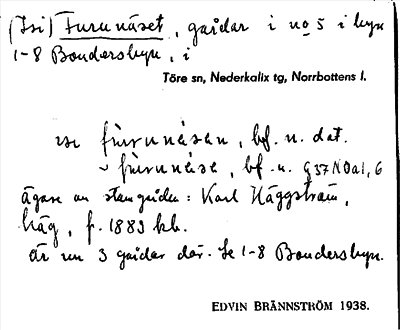 (Isi) Furunäset, gårdar i no 5 i byn
1-8 Bondersbyn, i
Töre sn, Nederkalix tg, Norrbottens l.
fùrunäsan, bf. n. dat.
fùrunäsa, bf. n.
ägare av stamgården: Karl Häggström,
häg, f. 1883 hb.
är nu 3 gårdar där. Se 1-8 Bondersbyn.
EDVIN BRÄNNSTRÖM 1938.